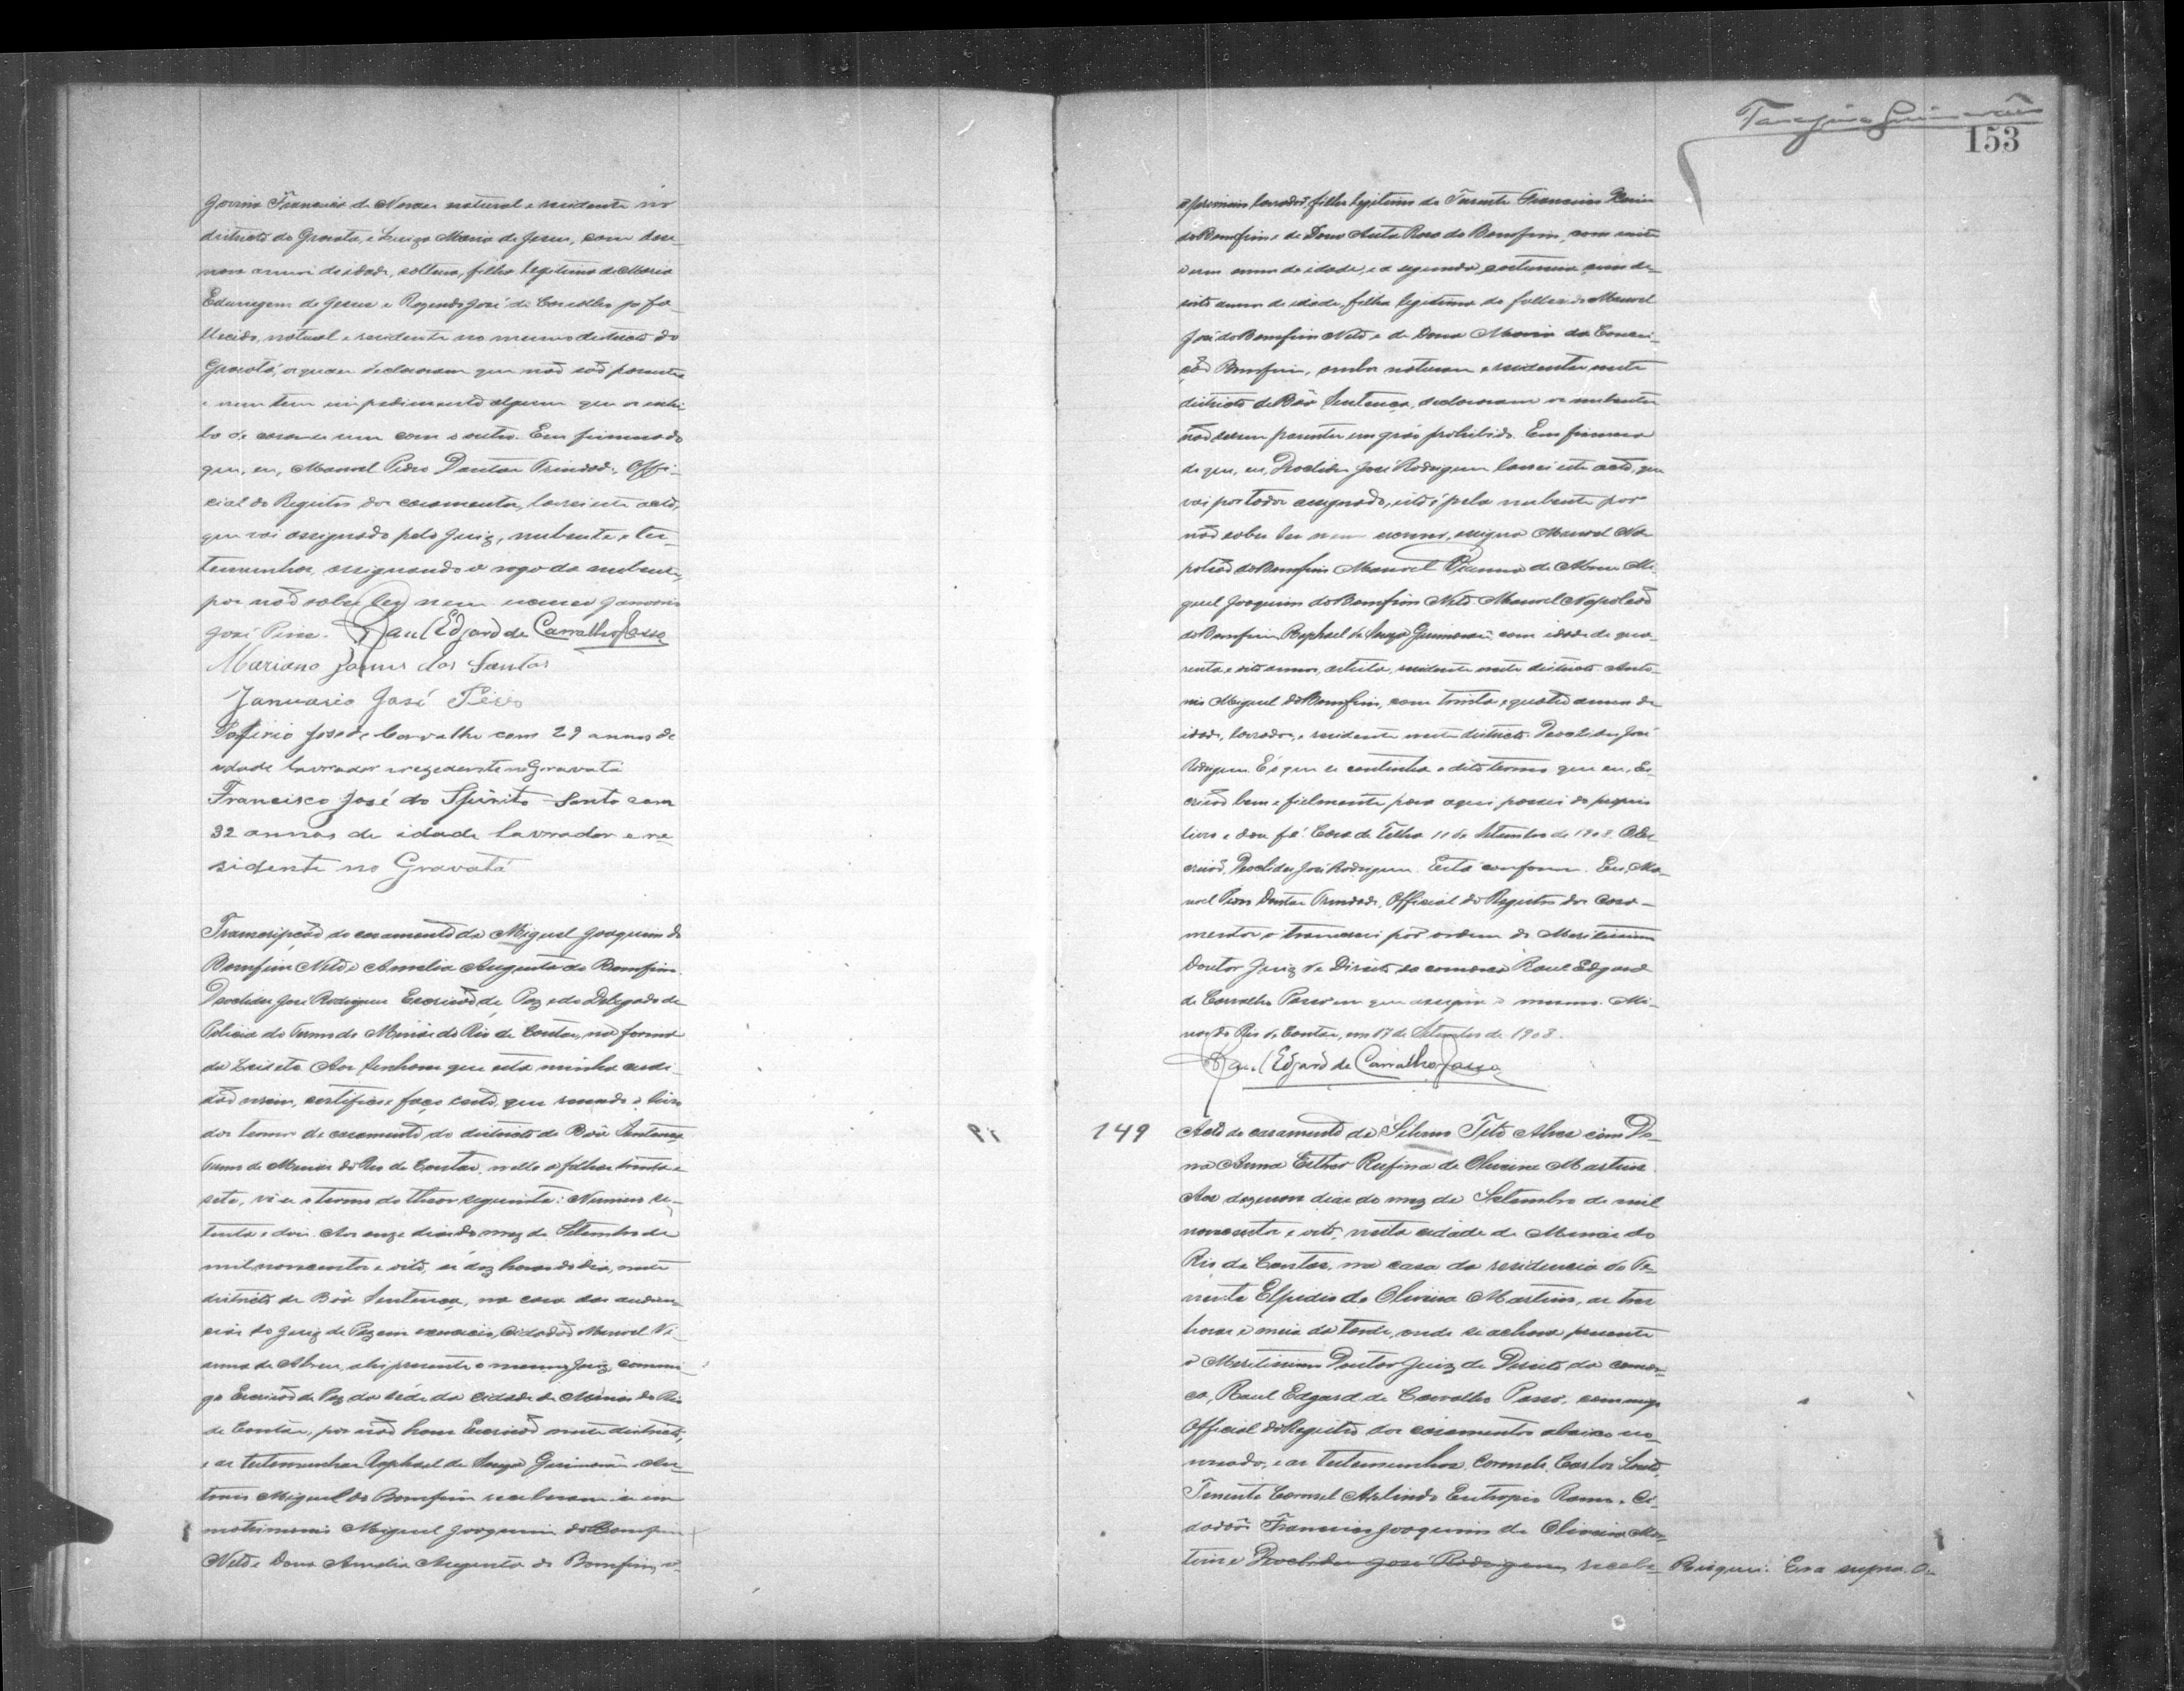 Jovina Francisca de Novaes natural e residente no
districto do Gravatá, e Luiza Maria de Jesus, com deze-
nove annos de idade, solteira, filha legitima de Maria
de Jesus e Rozendo José de Carvalho já fal-
lecido, natural e residente no mesmo districto do
Gravatá, os quaes declararam que não são parentes
e nem tem impedimento algum que os inhi-
ba de casar-se um com o outro. Em firmeza do
que, eu, Manoel Pedro Dantas Trindade, Offi-
cial do Registro dos casamentos, lavrei este acto,
que vai assignado pelo Juiz, nubente e tes-
temunhas, assignando a rogo da nubente,
por não saber ler nem escrever Januario
José Pires. Raul Edgard de Carvalho Passo
Mariano dos Santos
Januario José Pires
Porfirio José de Carvalho com 29 annos de
idade lavrador e rezedente no Gravatá
Francisco José do Spirito Santo com
32 annos de idade lavrador e re-
sidente no Gravatá
Transcripção do casamento de Miguel Joaquim do
Bomfim Neto e Amelia Augusta do Bomfim
Deoclides José Rodrigues Escrivão de Paz e do Delegado de
Policia do Termo de Minas do Rio de Contas, na forma
da Lei etc. Aos Senhores que esta minha certi-
dão virem, certifico e faço certo, que revendo o livro
dos termos de casamento, do districto de Bôa Sentença
Termo de Minas do Rio de Contas, nelle a folhas trinta e
sete, vi o termo do theor seguinte: Numero se-
tenta e dois. Aos onze dias do mez de Setembro de
mil novecentos e oito, ás dez horas do dia, neste
districto de Bôa Sentença, na casa das audien-
cias do Juiz de Paz em exercicio, Cidadão Manoel Vi-
anna de Abreu, ahi presente o mesmo Juiz, commi-
go Escrivão de Paz da séde da Cidade de Minas do Rio
de Contas, por não haver Escrivão neste districto,
e as testemunhas Raphael de Souza Guimarães e An-
tonio Miguel do Bomfim receberam-se em
matrimonio Miguel Joaquim do Bomfim
Neto e Dona Amelia Augusta do Bomfim,
Guimarães
153
o primeiro lavrador, filho legitimo do Tenente Francisco
do Bomfim e de Dona Anta Rosa do Bomfim, com vinte
e um annos de idade, e a segunda costureira, com de-
soito annos de idade, filha legitima do fallecido Manoel
José do Bomfim Neto e de Dona Maria da Concei-
ção Bomfim, ambos naturaes e residentes neste
districto de Bôa Sentença, declararam os nubentes
não serem parentes em gráo prohibido. Em firmeza
do que, eu, Deoclides José Rodrigues lavrei este acto, que
vai por todos assignado, isto é pela nubente por
não saber ler nem escrever, assigna Manoel Na-
poleão do Bomfim. Manoel Vianna de Abreu. Mi-
guel Joaquim do Bomfim Neto. Manoel Napoleão
do Bomfim. Raphael de Souza Guimarães com idade de qua-
renta e oito annos, artista, residente neste districto. Anto-
nio Miguel do Bomfim, com trinta e quatro annos de
idade, lavrador, e residente neste districto. Deoclides José
Rodrigues. É o que se continha o dito termo que eu, Es-
crivão bem e fielmente para aqui passei do proprio
livro e dou fé. Casa de Telha 11 de Setembro de 1908. O Es-
crivão, Deoclides José Rodrigues. Está conforme. Eu, Ma-
noel Pedro Dantas Trindade, Official do Registro dos casa-
mentos o transcrevi por ordem do Meritissimo
Doutor Juiz de Direito da comarca Raul Edgard
de Carvalho Passo em que assigna o mesmo. Mi-
nas do Rio de Contas, em 17 de Setembro de 1908.
Raul Edgard de Carvalho Passo
149 Acto do casamento de Silvano Tito Alves com Do-
na Anna Esther Rufina de Oliveira Martins.
Aos dezenove dias do mez de Setembro de mil
novecentos e oito, nesta cidade de Minas do
Rio de Contas, na casa da residencia do Te-
nente Elpidio de Oliveira Martins, as tres
horas e meia da tarde, onde se achava presente
o Meritissimo Doutor Juiz de Direito da comar-
ca, Raul Edgard de Carvalho Passo, commigo
Official do Registro dos casamentos abaixo no-
meado, e as testemunhas Coronel Carlos Souto,
Tenente Coronel Arlindo Eutropio Ramos, Ci-
dadãos Francisco Joaquim de Oliveira Mar-
tins e Deoclides José Rodrigues, recebe- Risquei. Era supra. O-